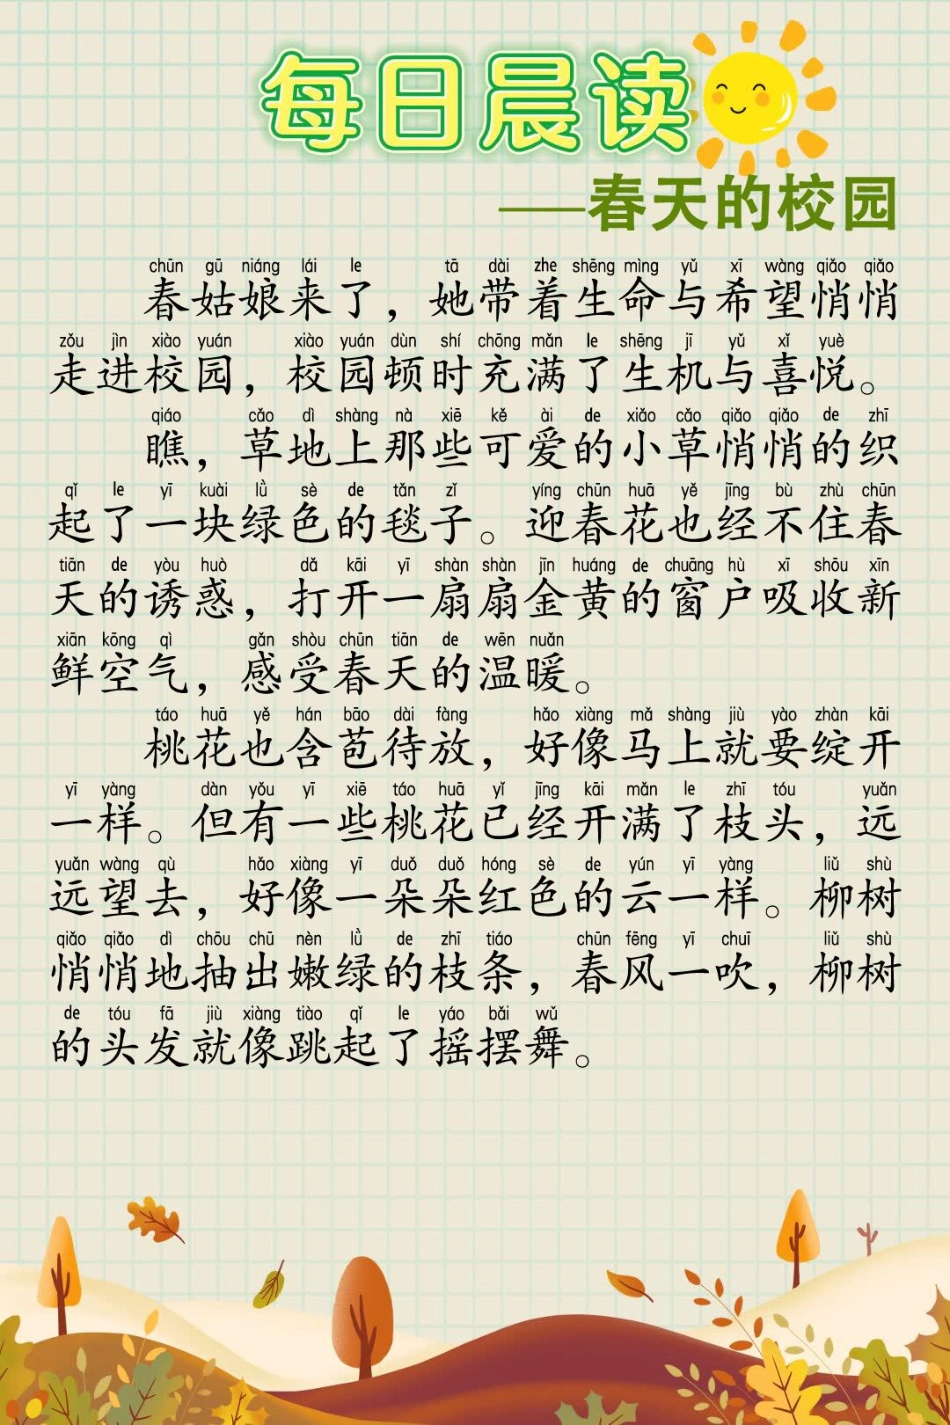 每日晨读
——春天的校园
chūn gū niáng lái le tā dài zhe shēng mìng yǔ xī wàng qiǎo qiǎo
春姑娘来了，她带着生命与希望悄悄
zǒu jìn xiào yuán xiào yuán dùn shí chōng mǎn le shēng jī yǔ xǐ yuè
走进校园，校园顿时充满了生机与喜悦。
qiáo cǎo dì shàng nà xiē kě ài de xiǎo cǎo qiǎo qiǎo de zhī
瞧，草地上那些可爱的小草悄悄的织
qǐ le yī kuài lǜ sè de tǎn zǐ yíng chūn huā yě jīng bù zhù chūn
起了一块绿色的毯子。迎春花也经不住春
tiān de yòu huò dǎ kāi yī shàn shàn jīn huáng de chuāng hù xī shōu xīn
天的诱惑，打开一扇扇金黄的窗户吸收新
xiān kōng qì gǎn shòu chūn tiān de wēn nuǎn
鲜空气，感受春天的温暖。
táo huā yě hán bāo dài fàng hǎo xiàng mǎ shàng jiù yào zhàn kāi
桃花也含苞待放，好像马上就要绽开
yī yàng dàn yǒu yī xiē táo huā yǐ jīng kāi mǎn le zhī tóu yuǎn
一样。但有一些桃花已经开满了枝头，远
yuǎn wàng qù hǎo xiàng yī duǒ duǒ hóng sè de yún yī yàng liǔ shù
远望去，好像一朵朵红色的云一样。柳树
qiǎo qiǎo dì chōu chū nèn lǜ de zhī tiáo chūn fēng yī chuī liǔ shù
悄悄地抽出嫩绿的枝条，春风一吹，柳树
de tóu fā jiù xiàng tiào qǐ le yáo bǎi wǔ
的头发就像跳起了摇摆舞。